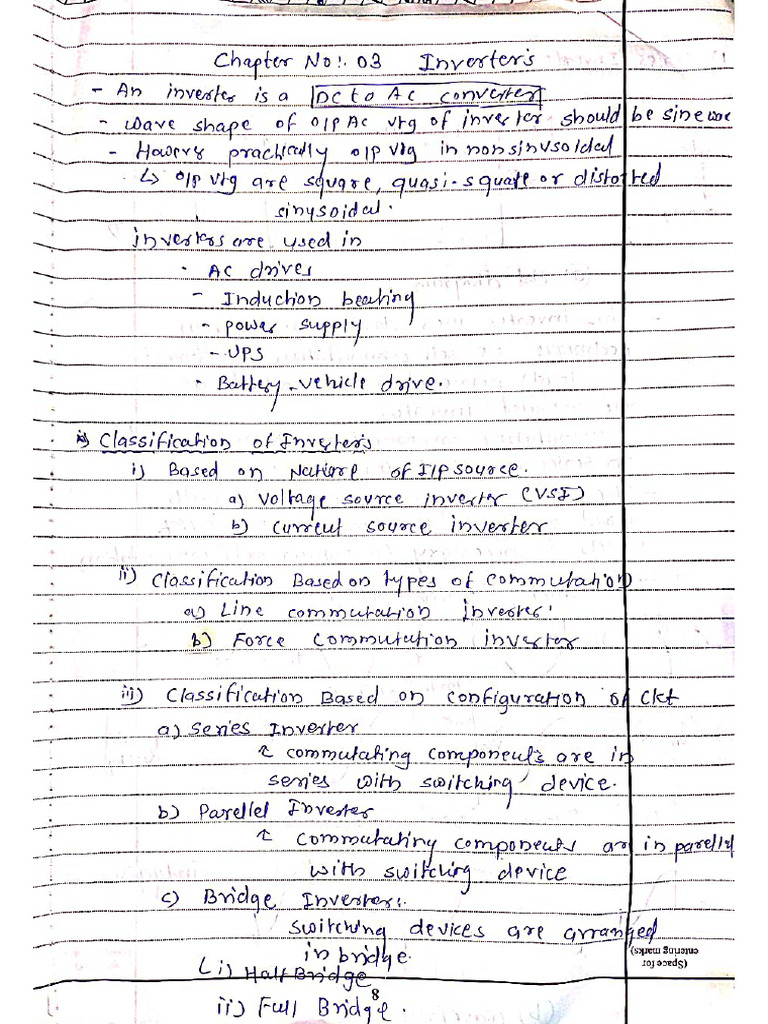 Chapter No:. 03 Inverter's
- An inverter is a DC to AC converter
- wave shape of o/p Ac vtg of inverter should be sinewave
- Howers practically o/p vtg in nonsinusoidal
↳ o/p vtg are square, quasi-square or distorted
sinusoidal.
inverters are used in
- AC drives
- Induction heating
- power supply
- UPS
- Battery-vehicle drive.
Classification of Inverter's
i) Based on Nature of I/p source.
a) Voltage source inverter (VSI)
b) Current source inverter
ii) Classification Based on types of commutation
a) Line commutation inverter.
b) Force Commutation inverter
iii) Classification Based on configuration of ckt
a) Series Inverter
↑ commutating components are in
series with switching device.
b) Parellel Inverter
↑ Commutating components are in parellel
with switching device
c) Bridge Inverter:.
switching devices are arranged
in bridge.
(Space for
entering marks)
(i) Half Bridge
8
ii) Full Bridge.